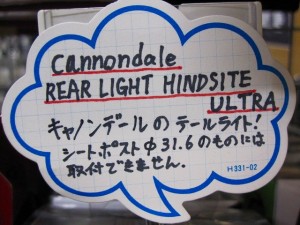 Cannondale
REAR LIGHT HINDSITE
ULTRA
キャノンデールのテールライト!
シートポストΦ31.6のものには
取付できません.
H331-02